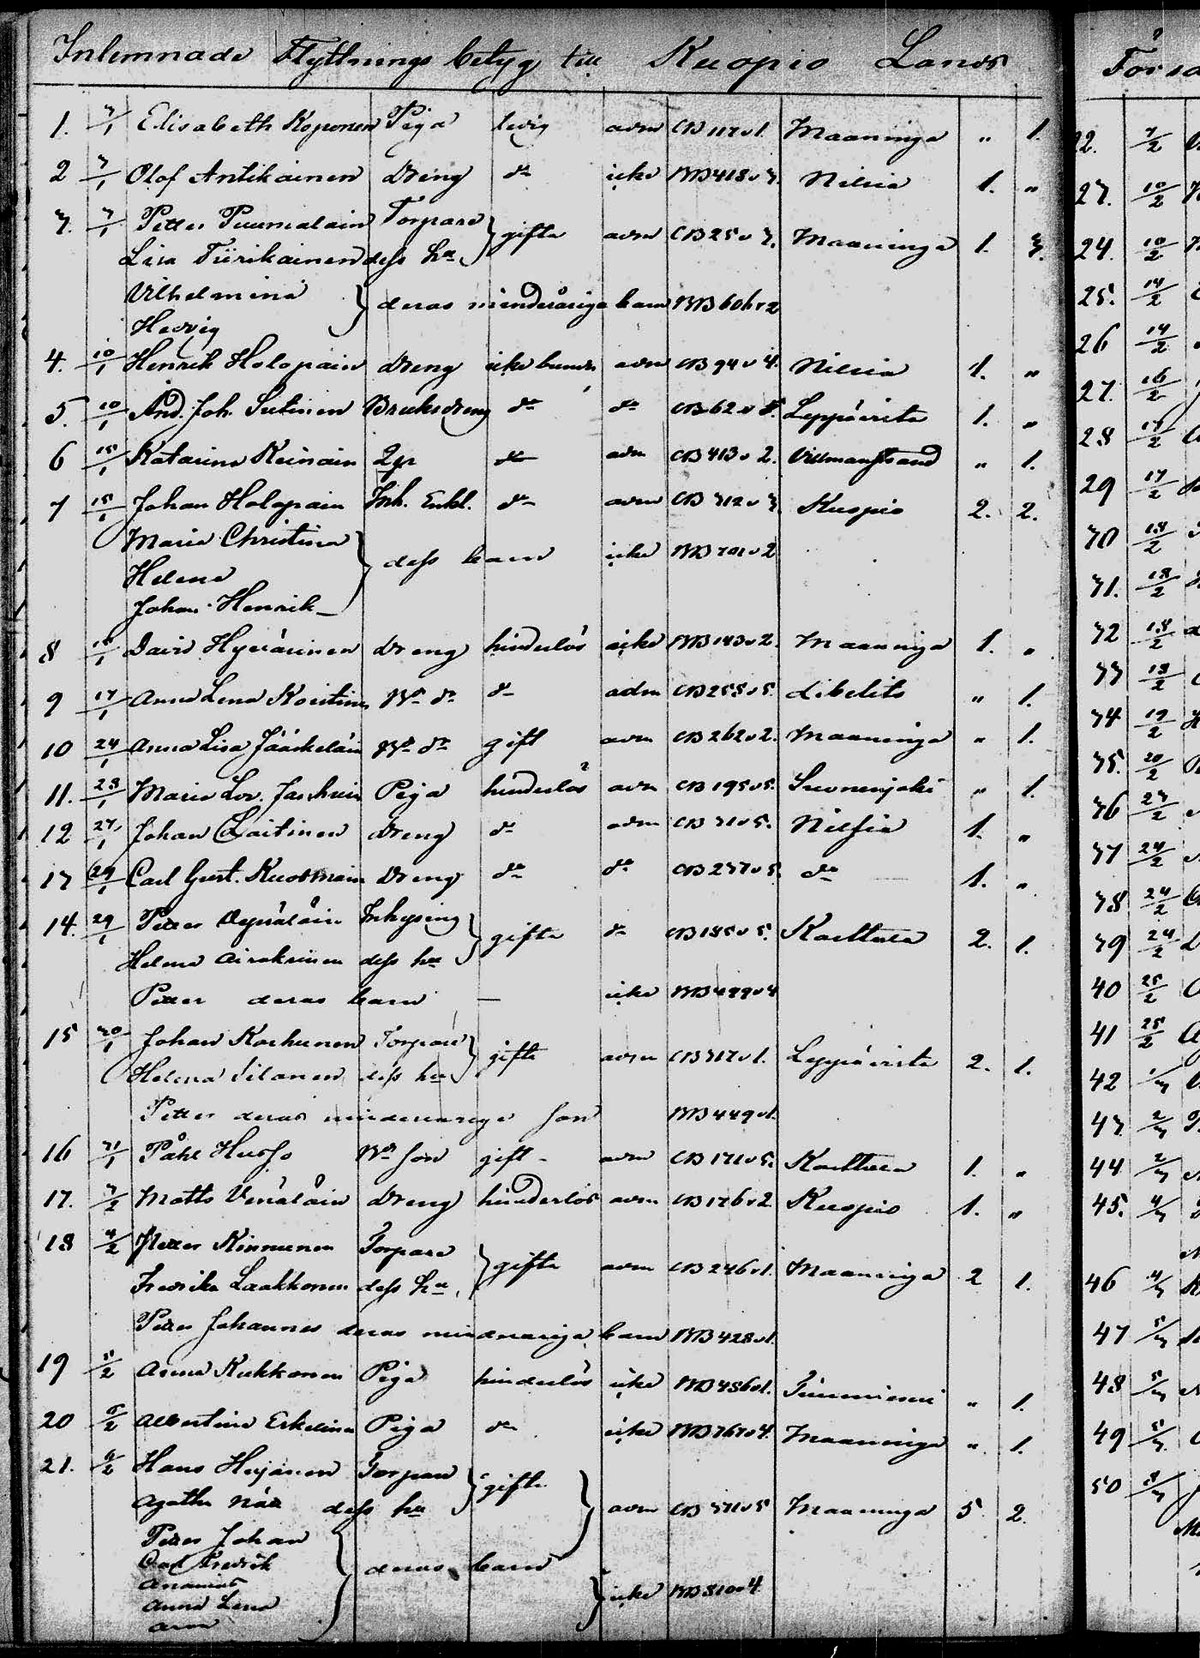 Inlemnade Flyttnings betyg till Kuopio Lands
1. 7/1 Elisabeth Koponen Piga ledig adm CB 117 o 1. Maaninga " 1.
2 7/1 Olof Antikainen dreng do icke BB 418 o 3. Nilsia 1. "
3. 7/1 Petter Puumalain Torpare gifte adm CB 25 o 3. Maaninga 1. 3.
Lisa Tiirikainen dess hu
Vilhelmina deras minderåriga barn BB 606 o 2
Hedvig
4. 10/1 Henrik Holopain dreng icke adm CB 94 o 4. Nilsia 1. "
5. 10/1 And. Joh. Sutinen Bruksdreng do do CB 62 o 5. Leppävirta 1. "
6 15/1 Katarina Keinain do adm CB 413 o 2. Villmanstrand " 1.
7 15/1 Johan Holopain Inh. Enkl. do adm CB 312 o 3 Kuopio 2. 2.
Maria Christina
Helena dess barn icke BB 701 o 2
Johan Henrik
8 15/1 David Hyvärinen dreng hinderlös icke BB 143 o 2. Maaninga 1. "
9 17/1 Anna Lena do adm CB 258 o 5. Libelits " 1.
10 24/1 Anna Lisa Jääskeläin gift adm CB 262 o 2. Maaninga " 1.
11. 23/1 Maria Lov. Piga hinderlös adm CB 195 o 5. Suonenjoki " 1.
12 27/1 Johan Laitinen dreng do adm CB 31 o 5. Nilsia 1. "
13 29/1 Carl Gust. Kuosmain Dreng do do CB 237 o 5. do 1. "
14. 29/1 Petter Inhysing gifte do CB 185 o 5. Karttula 2. 1.
Helena Airaksinen dess hu
Petter deras barn — icke BB 499 o 4
15 30/1 Johan Korhunen Torpare gifte adm CB 317 o 1. Leppävirta 2. 1.
Helena Silanen dess hu
Petter deras minderariga son BB 449 o 1.
16 31/1 Påhl Husso son gift adm CB 171 o 5. Karttula 1. "
17. 3/2 Matts Venäläin dreng hinderlös adm CB 176 o 2 Kuopio 1. "
18 4/2 Petter Kinnunen Torpare gifte adm CB 246 o 1. Maaninga 2 1.
Fredrika Laakkonen dess hu
Petter Johannes deras minderariga barn BB 428 o 1.
19 5/2 Anna Kukkonen Piga hinderlös icke BB 456 o 1. " 1.
20 5/2 Albertina Eskelina Piga do icke BB 767 o 4. Maaninga " 1.
21. 6/2 Hans Torpare gifte
Agatha dess hu adm CB 571 o 5 Maaninga 5 2.
Petter Johan
Carl Fredrik deras barn
Ananias icke BB 510 o 4
Anna Lena
22. 7/2
23. 10/2
24. 10/2
25. 14/2
26 14/2
27. 16/2
28
29 17/2
30 18/2
31. 18/2
32 18/2
33 18/2
34 19/2
35. 20/2
36 23/2
37 24/2
38 24/2
39 24/2
40 25/2
41 25/2
42 1/3
43 2/3
44 2/3
45. 4/3
46 4/3
47 5/3
48 5/3
49 5/3
50 8/3